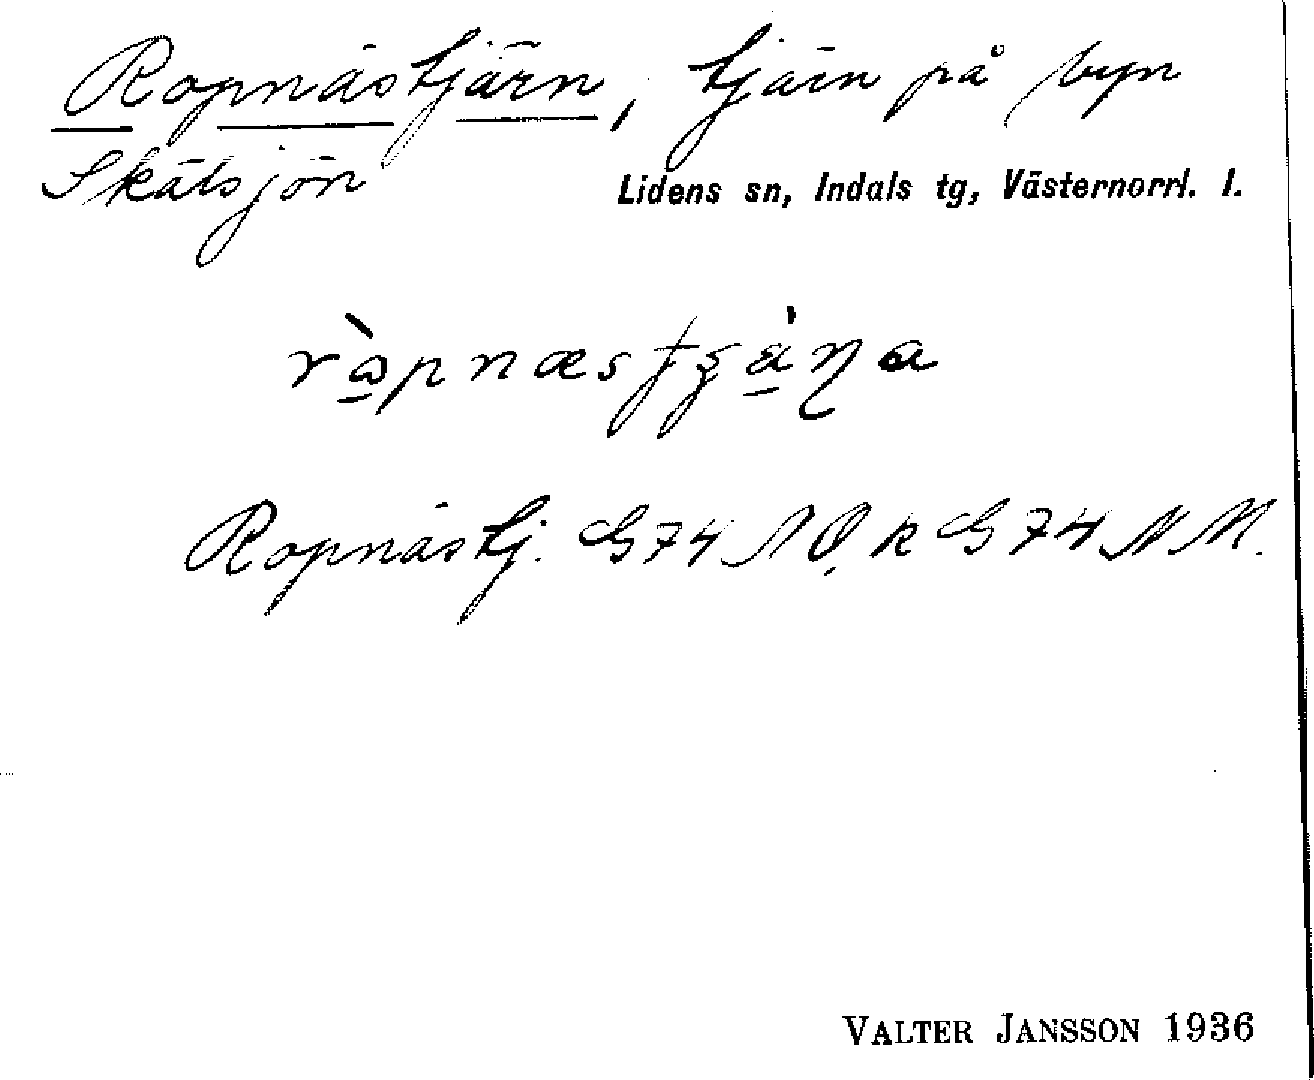 Ropnästjärn, tjärn på byn
Skälsjön
Lidens sn, Indals tg, Västernorrl. l.
Ropnästj. G74 NO, k G74 NM.
VALTER JANSSON 1936